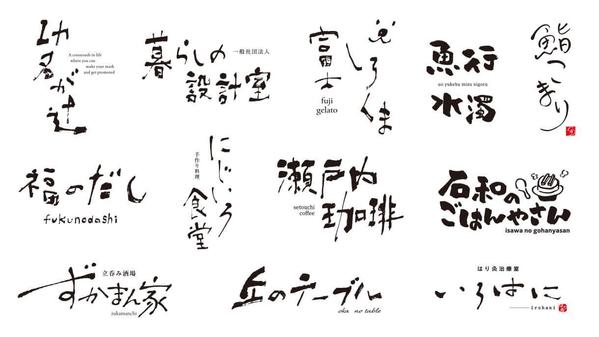 功名が辻
A crossroads in life
where you can
make your mark
and get promoted
暮らしの
設計室
一般社団法人
富士
しろくま
fuji
gelato
魚行
水濁
uo yukeba mizu nigoru
鮨つきり
福のだし
fukunodashi
手作り料理
にじいろ
食堂
瀬戸内
珈琲
setouchi
coffee
石和の
ごはんやさん
isawa no gohanyasan
立呑み酒場
ずかまん家
zukamanchi
丘のテーブル
oka no table
はり灸治療室
いろはに
irohani